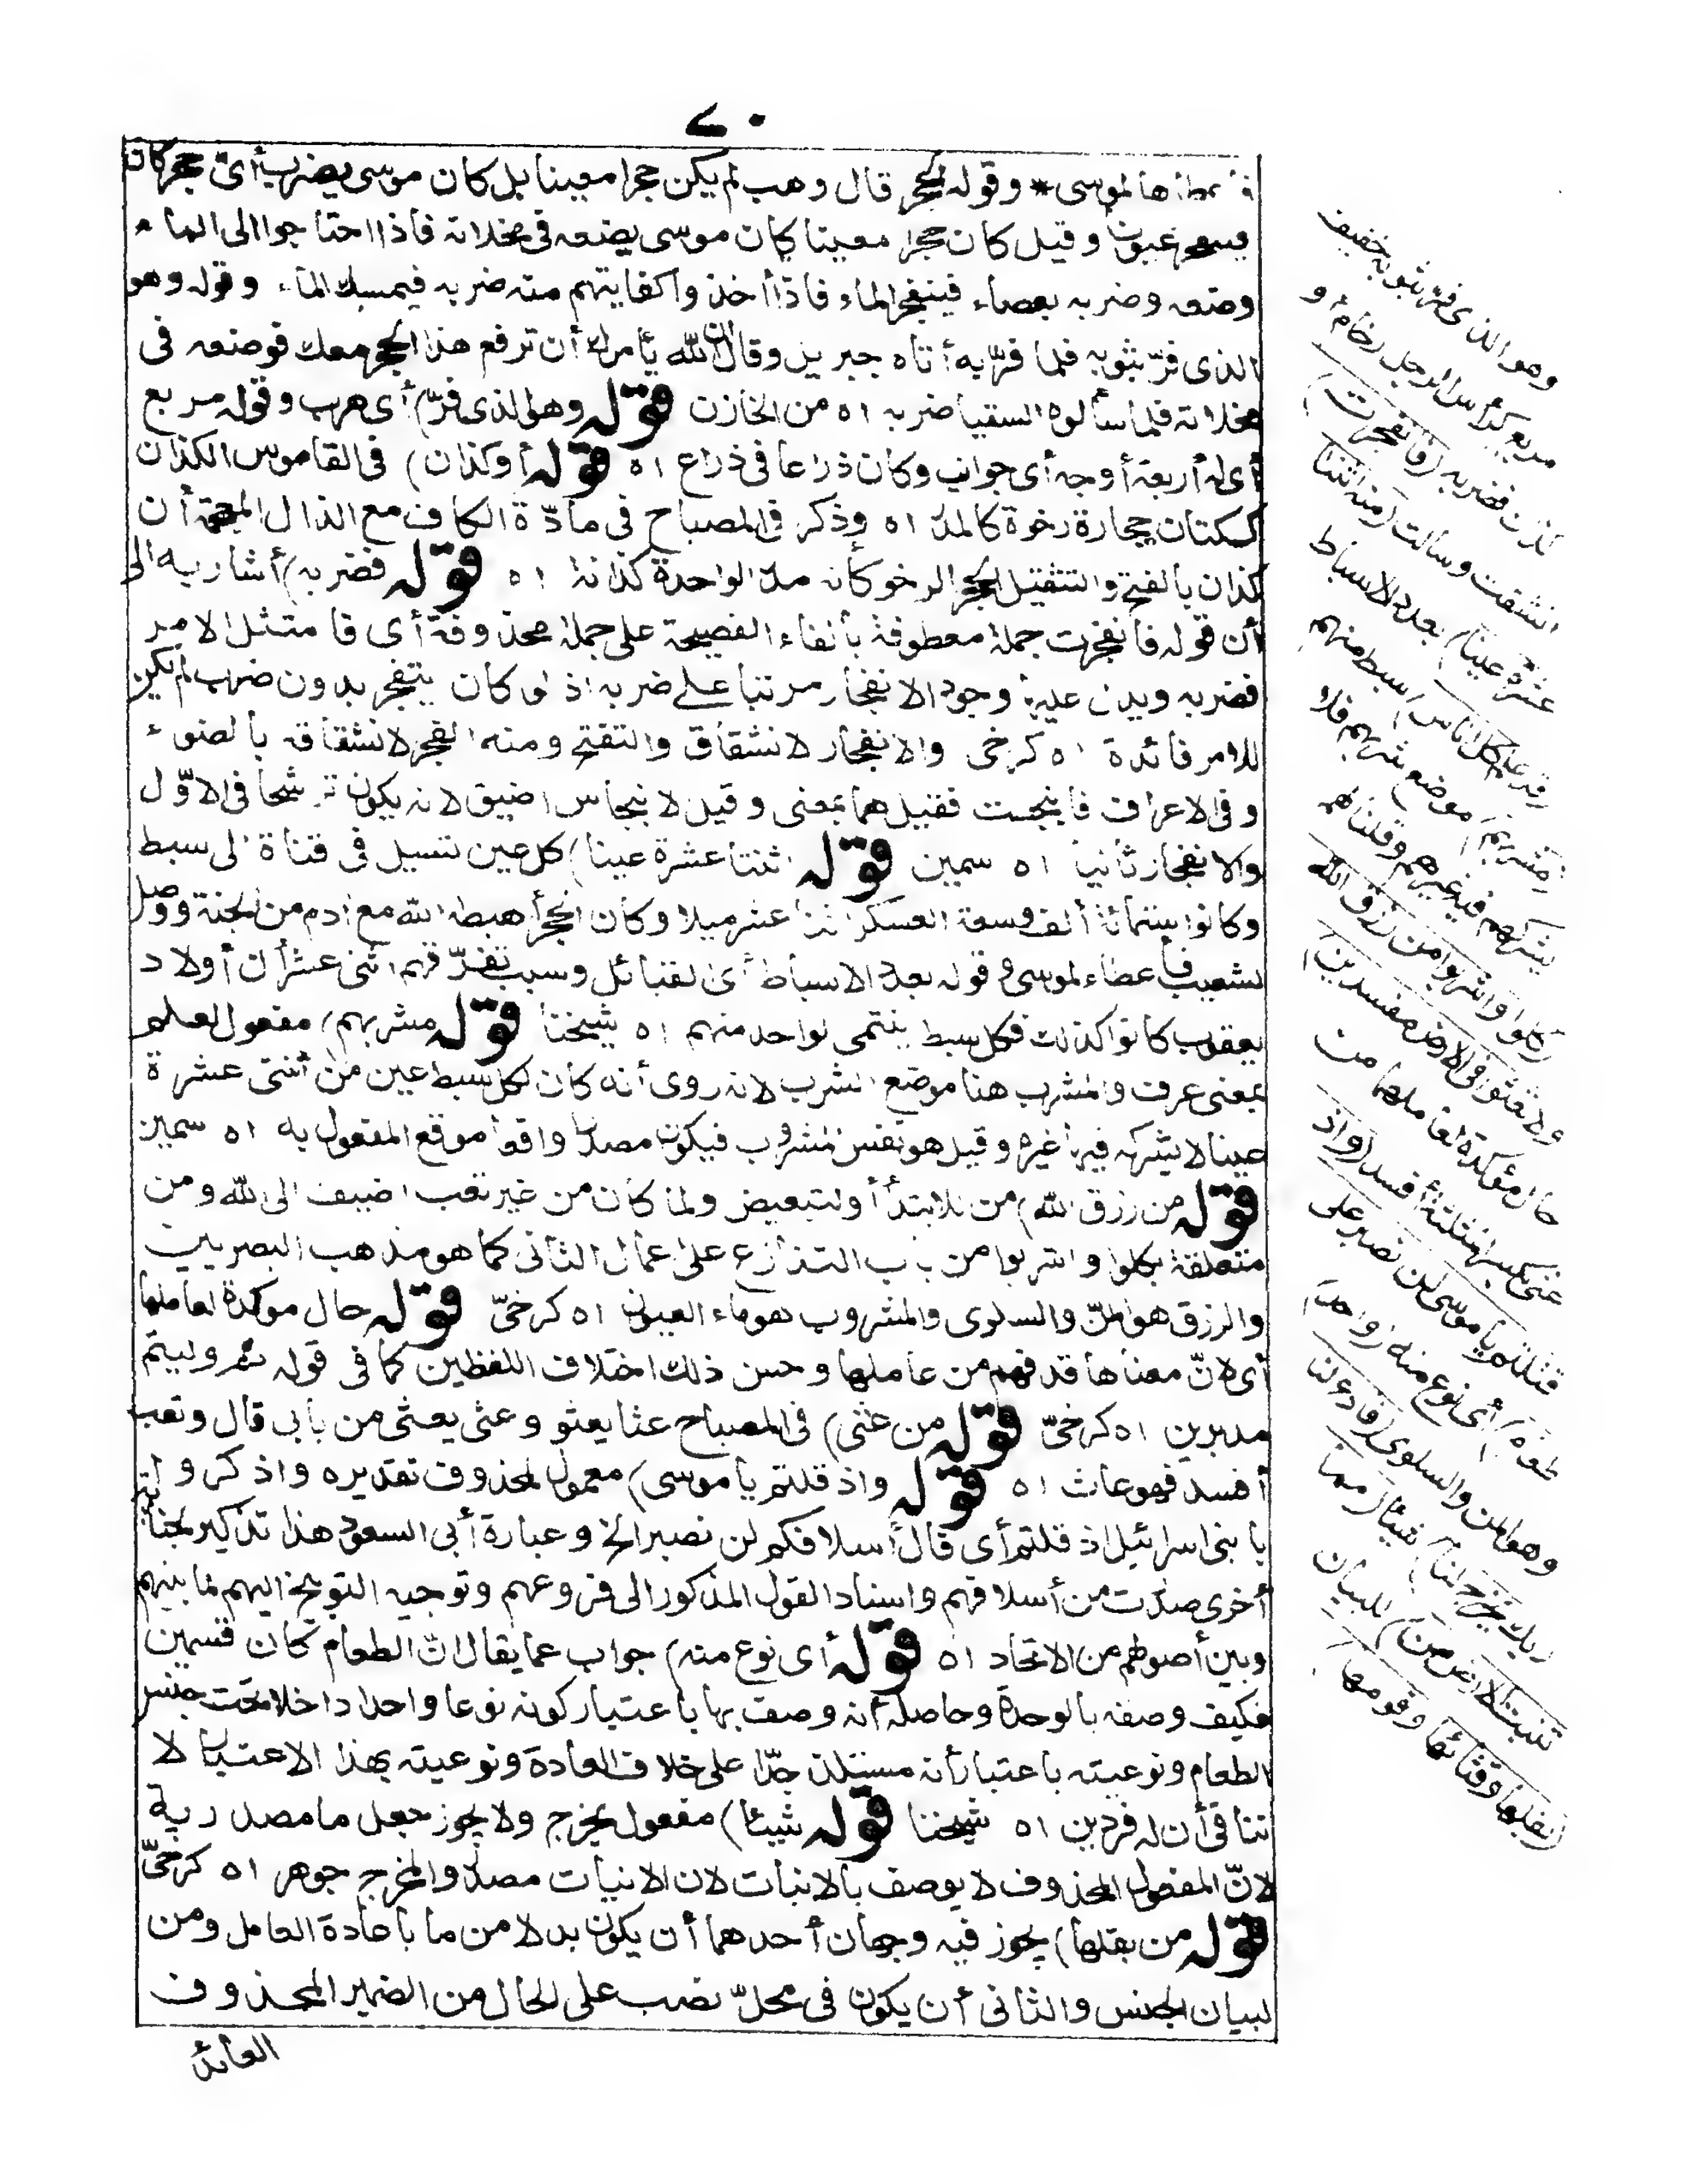 ٧٠
فأعطاها لموسى * وقوله الحجر قال وهب لم يكن حجرا معينا بل كان موسى يضرب أى حجر كان
عيون وقيل كان حجرا معينا كان موسى يضعه فى مخلاته فاذا احتاجوا الى الماء
وضعه وضربه بعصاه فينفجر الماء فاذا أخذوا كفايتهم منه ضربه فيمسك الماء وقوله وهو
الذى فرّ بثوبه فلما فرّ به أتاه جبريل وقال ان الله يأمرك أن ترفع هذا الحجر معك فوضعه فى
مخلاته فلما سألوه السقيا ضربه اه من الخازن قوله وهو الذى فرّ) أى هرب وقوله مربع
أى له أربعة أوجه أى جوانب وكان ذراعا فى ذراع اه قوله أو كذان) فى القاموس الكذان
ككتان حجارة رخوة كالمدر اه وذكر فى المصباح فى مادّة الكاف مع الذال المعجمة أن
كذان بالفتح والتثقيل الحجر الرخو كأنه مدر الواحدة كذانة اه قوله فضربه) أشار به الى
أن قوله فانفجرت جملة معطوفة بالفاء الفصيحة على جملة محذوفة أى فامتثل الامر
فضربه ويدل عليه وجود الانفجار مرتبا على ضربه اذ لو كان يتفجر بدون ضرب لم يكن
للامر فائدة اه كرخى والانفجار الانشقاق والتفتح ومنه الفجر لانشقاقه بالضوء
وفى الاعراف فانبجست فقيل هما بمعنى وقيل الانبجاس اضيق لانه يكون ترشحا فى الاوّل
والانفجار ثانيا اه سمين قوله اثنتا عشرة عينا) كل عين تسيل فى قناة الى سبط
وكانوا ستمائة ألف وسعة العسكر اثنا عشر ميلا وكان الحجر أهبطه الله مع ادم من الجنة ووصل
لشعيب فأعطاه لموسى وقوله بعدد الاسباط أى القبائل وسبب تفرّقهم اثنى عشر أن أولاد
يعقوب كانوا كذلك فكل سبط ينتمى لواحد منهم اه شيخنا قوله مشربهم) مفعول لعلم
بمعنى عرف والمشرب هنا موضع الشرب لانه روى أنه كان لكل سبط عين من اثنتى عشرة
عينا لا يشركه فيها غيره وقيل هو نفس المشروب فيكون مصدرا واقعا موقع المفعول به اه سمين
قوله من رزق الله) من للابتداء أو للتبعيض ولما كان من غير تعب اضيف الى الله ومن
متعلقة بكلوا واشربوا من باب التنازع على اعمال الثانى كما هو مذهب البصريين
والرزق هو المنّ والسلوى والمشروب هو ماء العيون اه كرخىّ قوله حال مؤكدة لعاملها
أى لانّ معناها قد فهم من عاملها وحسن ذلك اختلاف اللفظين كما فى قوله ثم وليتم
مدبرين اه كرخىّ قوله من عثى) فى المصباح عثا يعثو وعثى يعثى من بابى قال وتعب
أفسد فهو عاث اه قوله واذ قلتم يا موسى) معمول لمحذوف تقديره واذكروا
يا بنى اسرائيل اذ قلتم أى قال أسلافكم لن نصبر الخ وعبارة أبى السعود هذا تذكير لجناية
أخرى صدرت من أسلافهم واسناد القول المذكور الى فروعهم وتوجيه التوبيخ اليهم لما بينهم
وبين أصولهم من الاتحاد اه قوله أى نوع منه) جواب عما يقال انّ الطعام كان قسمين
فكيف وصفه بالوحدة وحاصله أنه وصف بها باعتبار كونه نوعا واحدا داخلا تحت جنس
الطعام ونوعيته باعتبار أنه مستلذ جدّا على خلاف العادة ونوعيته بهذا الاعتبار لا
تنافى أن له فردين اه شيخنا قوله شيئا) مفعول يخرج ولا يجوز جعل ما مصدرية
لانّ المفعول المحذوف لا يوصف بالانبات لان الانبات مصدر والمخرج جوهر اه كرخىّ
قوله من بقلها) يجوز فيه وجهان أحدهما أن يكون بدلا من ما باعادة العامل ومن
لبيان الجنس والثانى أن يكون فى محلّ نصب على الحال من الضمير المحذوف
العائد
وهو الذى فرّ بثوبه خفيف
مربع كرأس الرجل رخام أو
كذان فضربه (فانفجرت)
انشقت وسالت (منه اثنتا
عشرة عينا) بعدد الاسباط
(قد علم كل أناس) سبط منهم
(مشربهم) موضع شربهم فلا
يشركهم فيه غيرهم وقلنا لهم
(كلوا واشربوا من رزق الله
ولا تعثوا فى الارض مفسدين)
حال مؤكدة لعاملها من
عثى بكسر المثلثة أفسد (واذ
قلتم يا موسى لن نصبر على
طعام) أى نوع منه (واحد)
وهو المن والسلوى (فادع لنا
ربك يخرج لنا) شيئا (مما
تنبت الارض من) للبيان
(بقلها وقثائها وفومها)